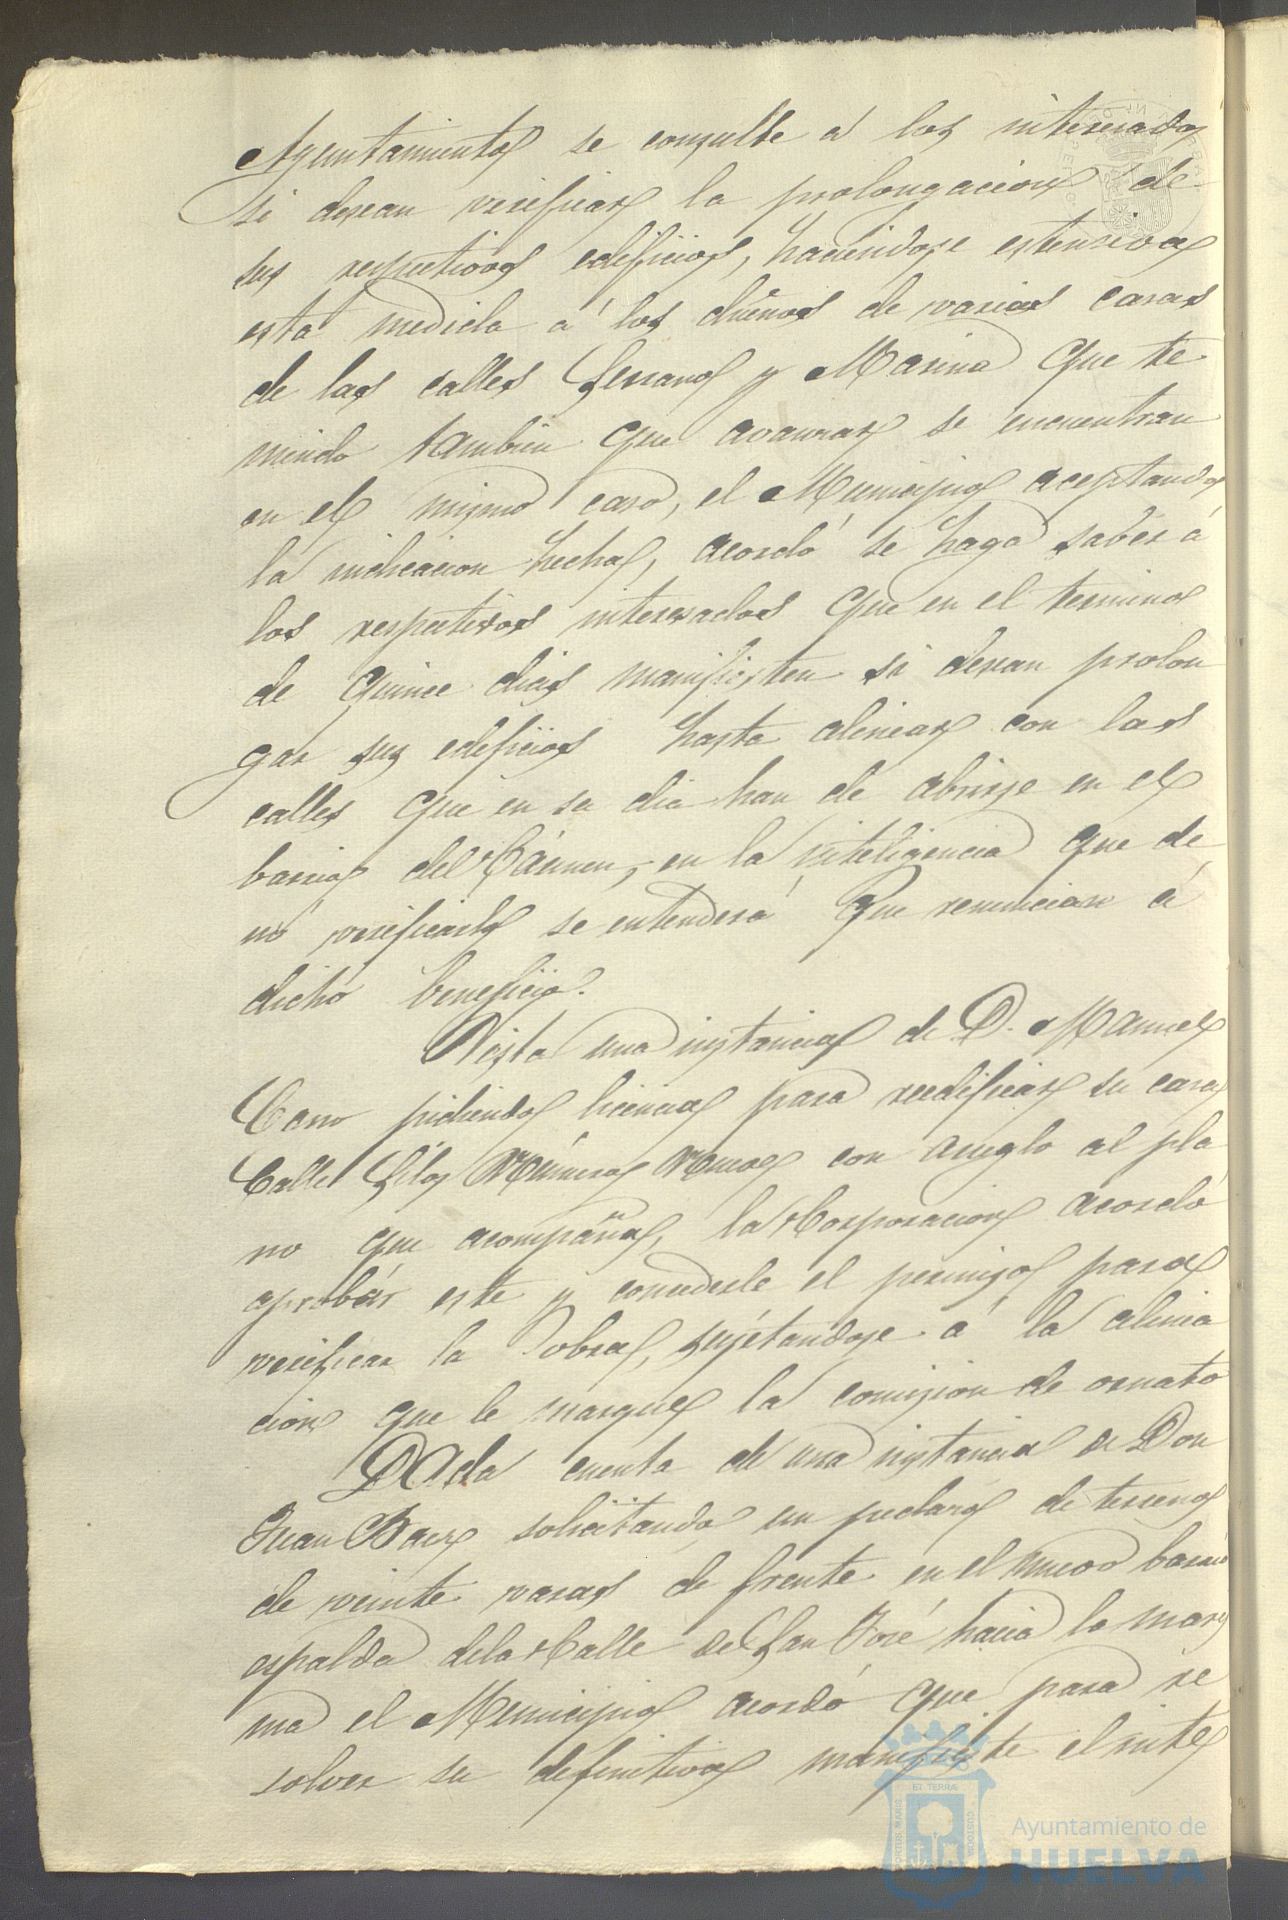 Ayuntamiento se consulte a los interesados
si desean verificar la prolongacion de
sus respectivos edificios, haciendose estensiva
esta medida á los dueños de varias casas
de las calles Serrano y Marina que te
niendo tambien que avanzar se encuentran
en el mismo caso, el Municipio aceptando
la indicacion hecha, acordó se haga saber á
los respectivos interesados que en el termino
de quince dias manifiesten si desean prolon
gar sus edificios hasta alinear con las
calles que en su dia han de abrirse en el
barrio del Cármen, en la inteligencia que de
nó verificarlo se entenderá que renuncian á
dicho beneficio.
Vista una instancia de D. Manuel
Cano pidiendo licencia para reedificar su casa
Calle Silos Número Nueve con arreglo al pla
no que acompaña, la Corporacion acordó
aprobár este y concederle el permiso para
verificar la obra, sujetandose á la alinia
cion que le marque la comision de ornato
Dada cuenta de una instancia de Don
Juan Baez solicitando un pedazo de terreno
de veinte varas de frente en el nuevo barrio
espalda dela Calle de San José hacia la mary
ma el Municipio acordó que para re
solver en definitiva manifieste el inte
Ayuntamiento de
HUELVA